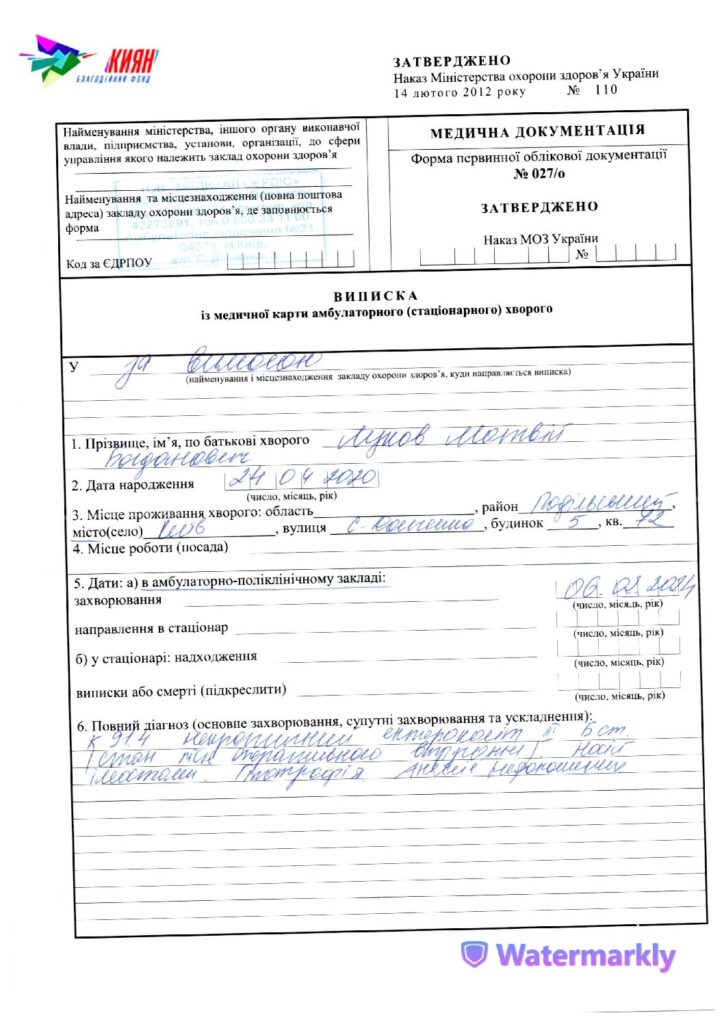 КИЯН
БЛАГОДІЙНИЙ ФОНД
ЗАТВЕРДЖЕНО
Наказ Міністерства охорони здоров'я України
14 лютого 2012 року № 110
Найменування міністерства, іншого органу виконавчої
влади, підприємства, установи, організації, до сфери
управління якого належить заклад охорони здоров'я
Найменування та місцезнаходження (повна поштова
адреса) закладу охорони здоров'я, де заповнюється
форма
Код за ЄДРПОУ
МЕДИЧНА ДОКУМЕНТАЦІЯ
Форма первинної облікової документації
№ 027/о
ЗАТВЕРДЖЕНО
Наказ МОЗ України
№
ВИПИСКА
із медичної карти амбулаторного (стаціонарного) хворого
У за вимогою
(найменування і місцезнаходження закладу охорони здоров'я, куди направляється виписка)
1. Прізвище, ім'я, по батькові хворого Матвій
Богданович
2. Дата народження 24 04 2020
(число, місяць, рік)
3. Місце проживання хворого: область, район Подільський,
місто(село) Київ, вулиця, будинок 5, кв. 72
4. Місце роботи (посада)
5. Дати: а) в амбулаторно-поліклінічному закладі:
захворювання 06.02.2024
(число, місяць, рік)
направлення в стаціонар
(число, місяць, рік)
б) у стаціонарі: надходження
(число, місяць, рік)
виписки або смерті (підкреслити)
(число, місяць, рік)
6. Повний діагноз (основне захворювання, супутні захворювання та ускладнення):
К 91.4 ентероколіт III Б ст.
(стан після оперативного втручання) Носій
ілеостоми. Гіпотрофія. Анемія недоношених
Watermarkly